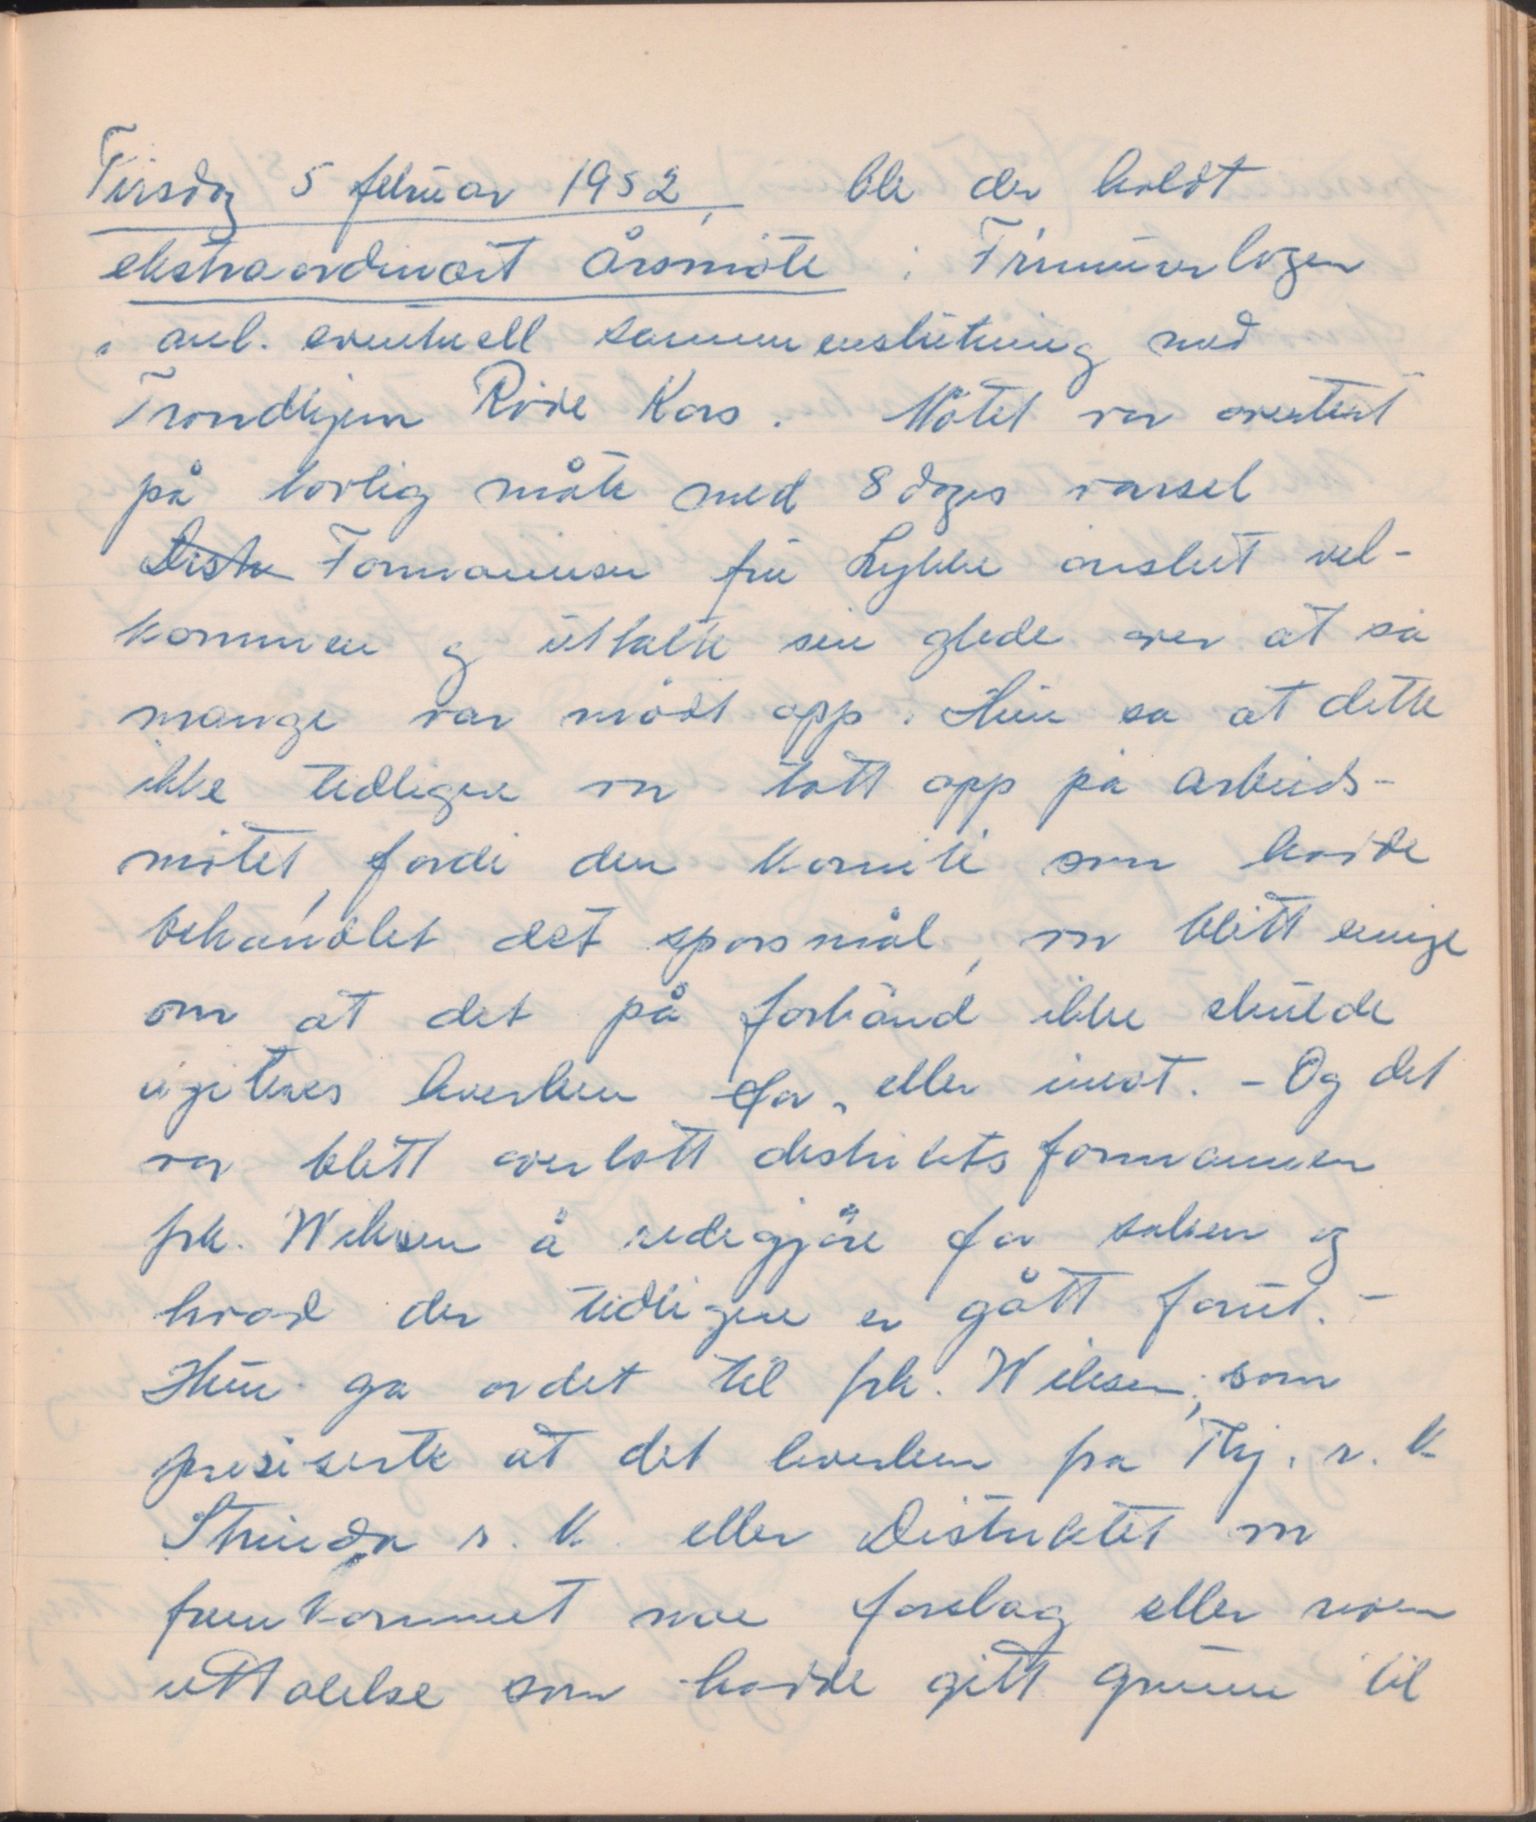 Tirsdag 5 februar 1952, ble der holdt
ekstraordinært årsmöte i Frimurerlogen
i anl. eventuell sammenslutning med
Trondhjem Röde Kors. Mötet var avertert
på lovlig måte med 8 dages varsel
Distr Formannen fru Lykke önsket vel-
kommen og uttalte sin glede over at så
mange var mödt opp. Hun sa at dette
ikke tidligere var tatt opp på arbeids-
mötet, fordi den komité som hadde
behandlet det spörsmål, var blitt enige
om at det på forhånd ikke skulde
agiteres hverken for, eller imot. - Og det
var blitt overlatt distriktsformannen
frk. Wiksen å redegjöre for saken og
hvad der tidligere er gått forut. -
Hun ga ordet til frk. Wiksen, som
presiserte at det hverken fra Thj. r. K
Strinda r. K. eller Distriktet var
fremkommet noe forslag eller noen
uttalelse som hadde gitt grunn til